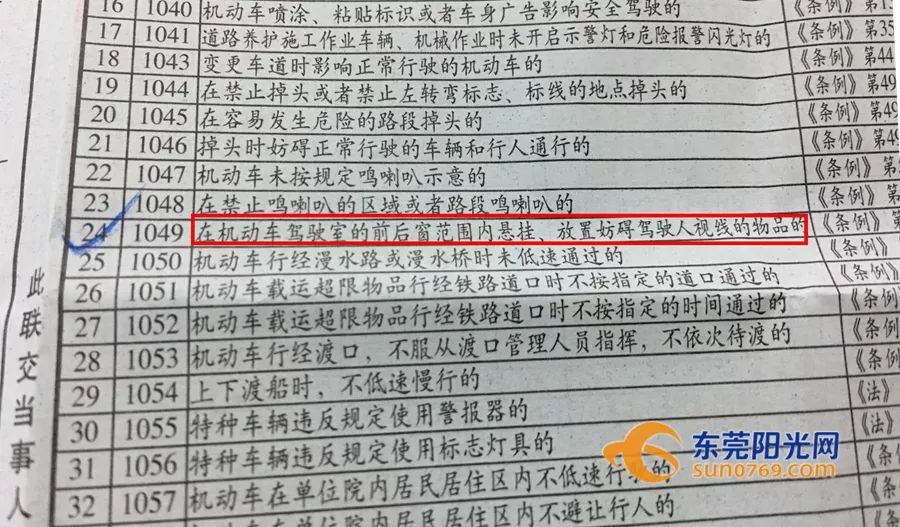 16 1040 机动车喷涂、粘贴标识或者车身广告影响安全驾驶的 《条例》第13
17 1041 道路养护施工作业车辆、机械作业时未开启示警灯和危险报警闪光灯的 《条例》第35
18 1043 变更车道时影响正常行驶的机动车的 《条例》第44
19 1044 在禁止掉头或者禁止左转弯标志、标线的地点掉头的 《条例》第49
20 1045 在容易发生危险的路段掉头的 《条例》第49
21 1046 掉头时妨碍正常行驶的车辆和行人通行的 《条例》第49
22 1047 机动车未按规定鸣喇叭示意的 《条例》第
23 1048 在禁止鸣喇叭的区域或者路段鸣喇叭的 《条例》第
24 1049 在机动车驾驶室的前后窗范围内悬挂、放置妨碍驾驶人视线的物品的 《条例》第
25 1050 机动车行经漫水路或漫水桥时未低速通过的 《条例》
26 1051 机动车载运超限物品行经铁路道口时不按指定的道口通过的 《条例》
27 1052 机动车载运超限物品行经铁路道口时不按指定的时间通过的 《条例》
28 1053 机动车行经渡口，不服从渡口管理人员指挥，不依次待渡的 《条例
29 1054 上下渡船时，不低速慢行的 《条例
30 1055 特种车辆违反规定使用警报器的 《法》
31 1056 特种车辆违反规定使用标志灯具的 《法》
32 1057 机动车在单位院内居民居住区内不低速行 的 《条例
机动车在单位院内居民居住区内不避让行人的 《条
此联交当事人
东莞阳光网
sun0769.com